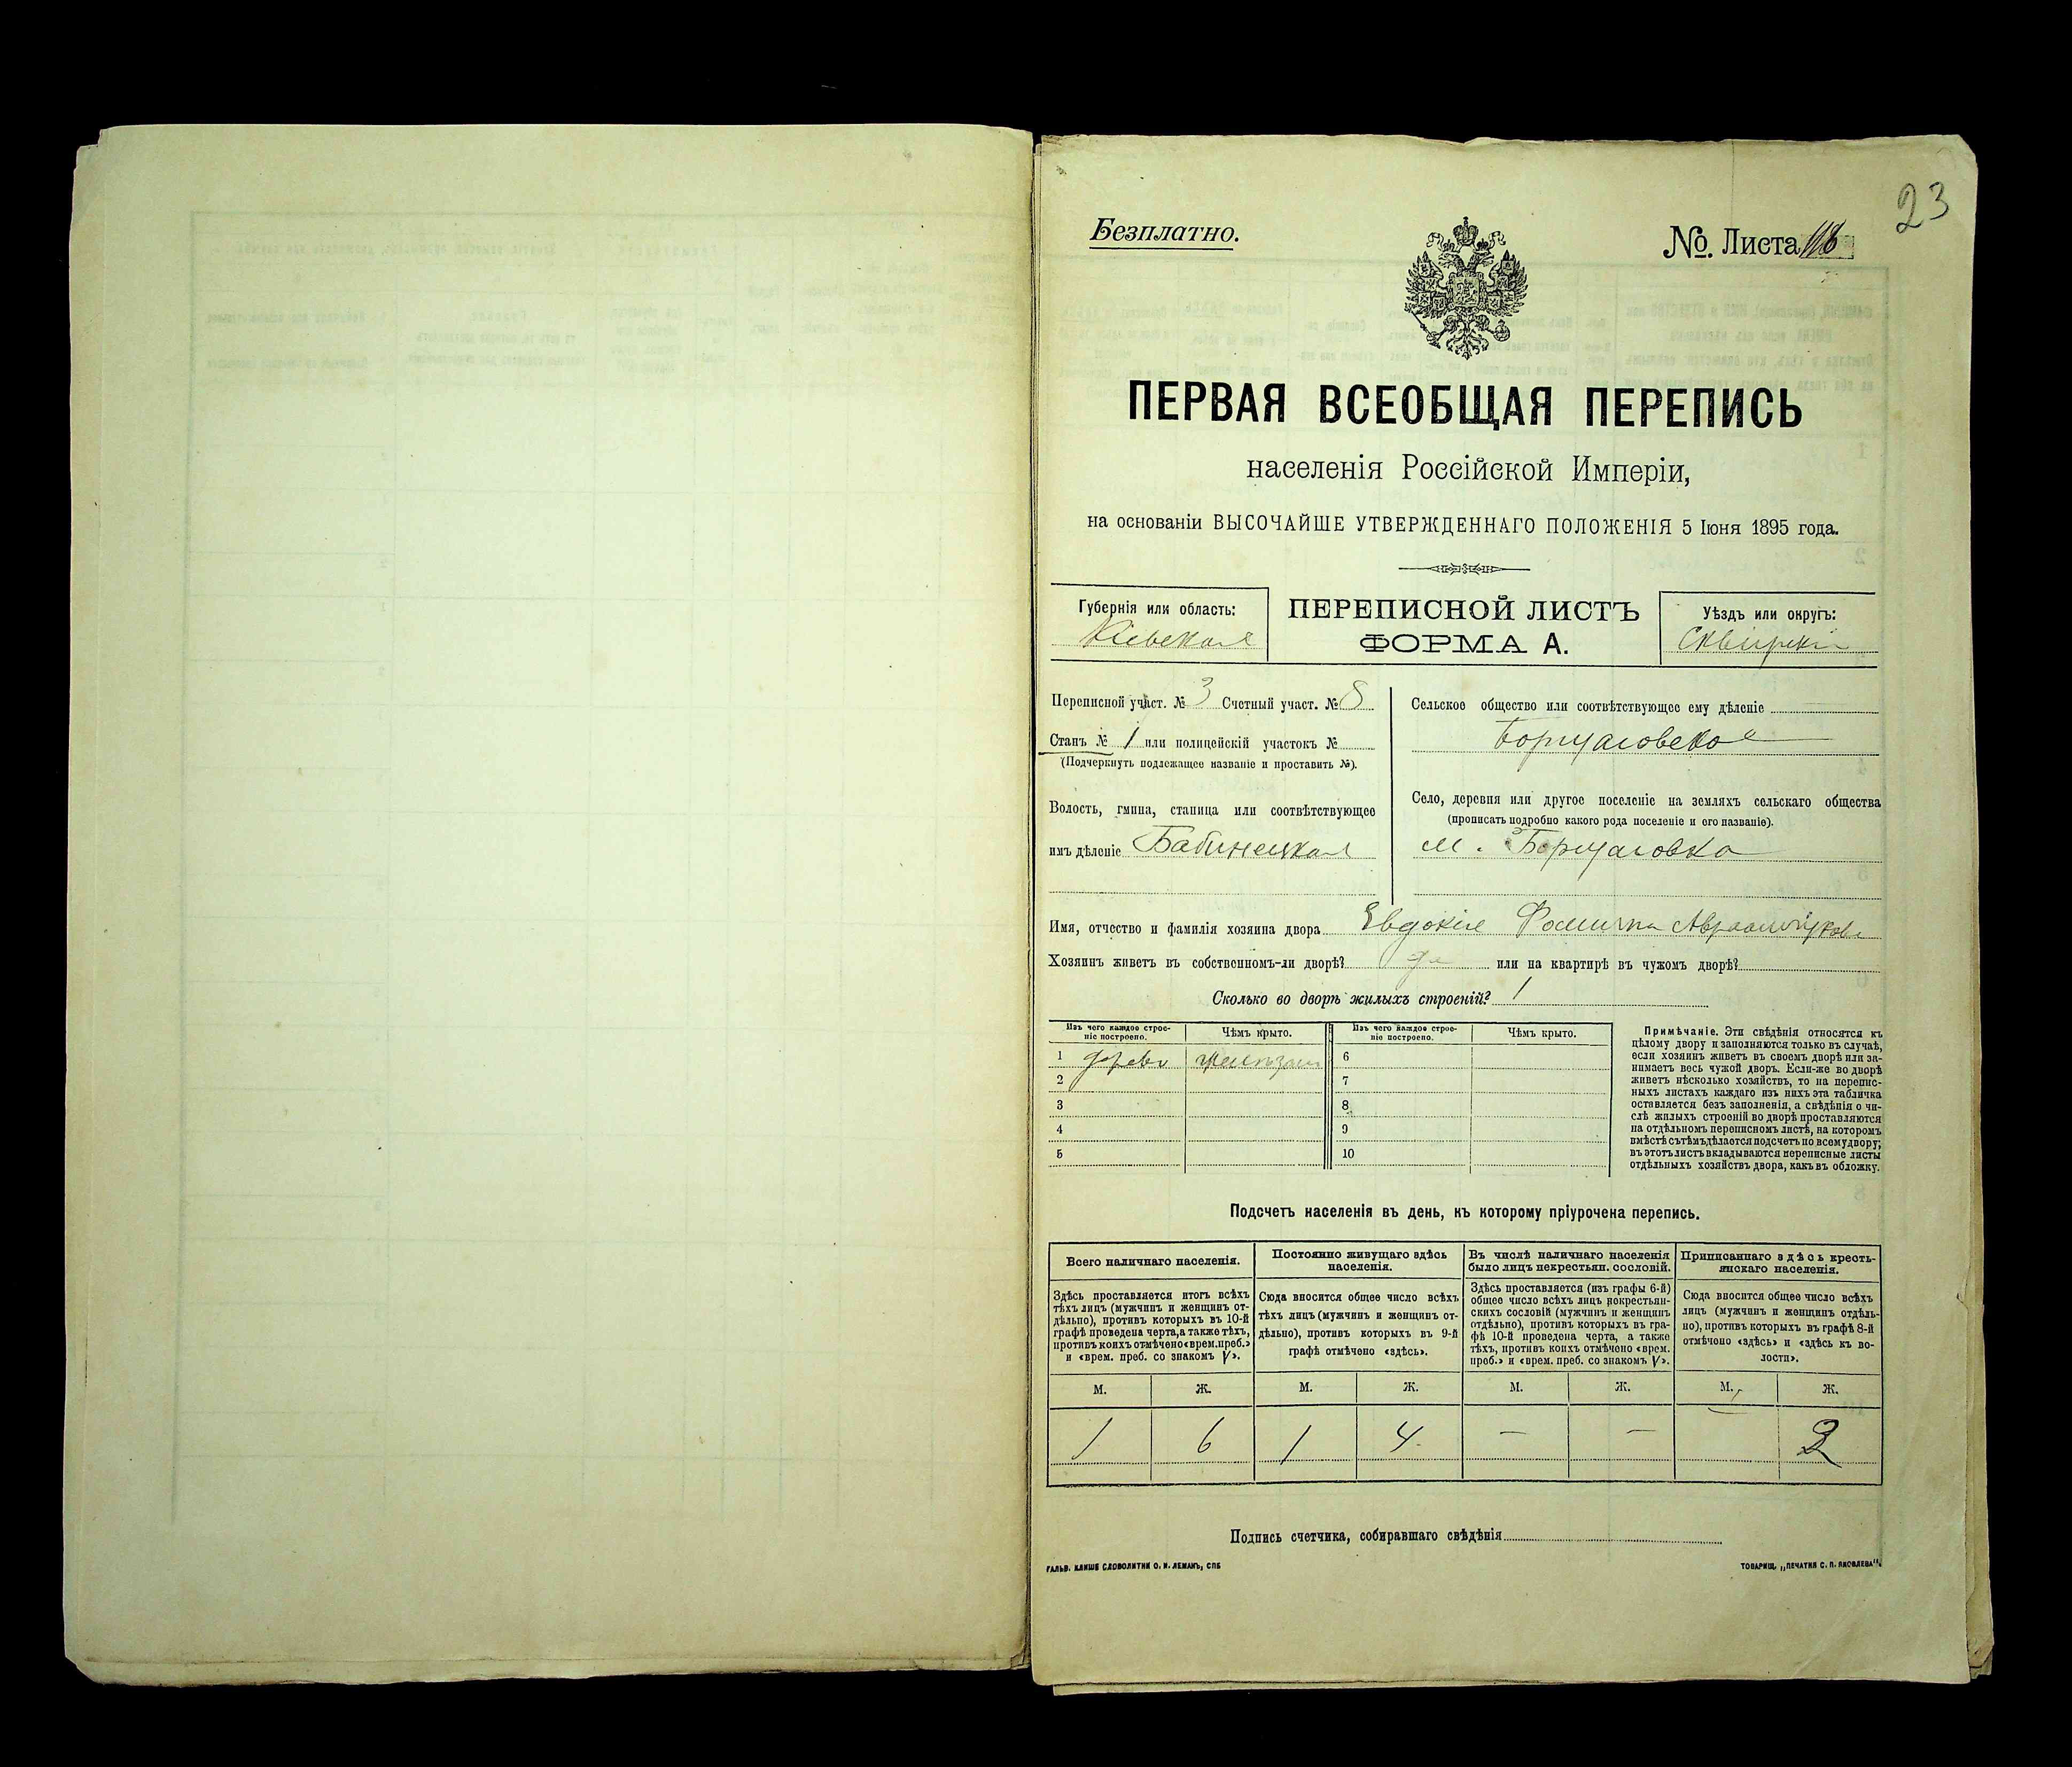 23
Безплатно.
№. Листа 118
ПЕРВАЯ ВСЕОБЩАЯ ПЕРЕПИСЬ
населенія Россійской Имперіи,
на основаніи ВЫСОЧАЙШЕ УТВЕРЖДЕННАГО ПОЛОЖЕНІЯ 5 Іюня 1895 года.
Губернія или область:
Кіевская
ПЕРЕПИСНОЙ ЛИСТЪ
ФОРМА А.
Уѣздъ или округъ:
Сквирскій
Переписной участ. № 3 Счетный участ. № 8
Станъ № 1 или полицейскій участокъ №
(Подчеркнуть подлежащее названіе и проставить №).
Волость, гмина, станица или соотвѣтствующее
имъ дѣленіе Бабинецкая
Сельское общество или соотвѣтствующее ему дѣленіе
Борщаговское
Село, деревня или другое поселеніе на земляхъ сельскаго общества
(прописать подробно какого рода поселеніе и его названіе).
м. Борщаговка
Имя, отчество и фамилія хозяина двора Евдокія
Хозяинъ живетъ въ собственномъ-ли дворѣ? да или на квартирѣ въ чужомъ дворѣ?
Сколько во дворѣ жилыхъ строеній? 1
Изъ чего каждое строе-
ніе построено.
Чѣмъ крыто.
Изъ чего каждое строе-
ніе построено.
Чѣмъ крыто.
1 дерево 6
2 7
3 8
4 9
5 10
Примѣчаніе. Эти свѣдѣнія относятся къ
цѣлому двору и заполняются только въ случаѣ,
если хозяинъ живетъ въ своемъ дворѣ или за-
нимаетъ весь чужой дворъ. Если-же во дворѣ
живетъ нѣсколько хозяйствъ, то на перепис-
ныхъ листахъ каждаго изъ нихъ эта табличка
оставляется безъ заполненія, а свѣдѣнія о чи-
слѣ жилыхъ строеній во дворѣ проставляются
на отдѣльномъ переписномъ листѣ, на которомъ
вмѣстѣ съ тѣмъ дѣлается подсчетъ по всему двору;
въ этотъ листъ вкладываются переписные листы
отдѣльныхъ хозяйствъ двора, какъ въ обложку.
Подсчетъ населенія въ день, къ которому пріурочена перепись.
Всего наличнаго населенія.
Здѣсь проставляется итогъ всѣхъ
тѣхъ лицъ (мужчинъ и женщинъ от-
дѣльно), противъ которыхъ въ 10-й
графѣ проведена черта, а также тѣхъ,
противъ коихъ отмѣчено «врем. преб.»
и «врем. преб. со знакомъ V».
Постоянно живущаго здѣсь
населенія.
Сюда вносится общее число всѣхъ
тѣхъ лицъ (мужчинъ и женщинъ от-
дѣльно), противъ которыхъ въ 9-й
графѣ отмѣчено «здѣсь».
Въ числѣ наличнаго населенія
было лицъ некрестьян. сословій.
Здѣсь проставляется (изъ графы 6-й)
общее число всѣхъ лицъ некрестьян-
скихъ сословій (мужчинъ и женщинъ
отдѣльно), противъ которыхъ въ гра-
фѣ 10-й проведена черта, а также
тѣхъ, противъ коихъ отмѣчено «врем.
преб.» и «врем. преб. со знакомъ V».
Приписаннаго здѣсь кресть-
янскаго населенія.
Сюда вносится общее число всѣхъ
лицъ (мужчинъ и женщинъ отдѣль-
но), противъ которыхъ въ графѣ 8-й
отмѣчено «здѣсь» и «здѣсь къ во-
лости».
М. Ж. М. Ж. М. Ж. М. Ж.
1 6 1 4 — — — 2
Подпись счетчика, собиравшаго свѣдѣнія
ГАЛЬВ. КЛИШЕ СЛОВОЛИТНИ О. И. ЛЕМАНЪ, СПБ
ТОВАРИЩ. „ПЕЧАТНЯ С. П. ЯКОВЛЕВА“.